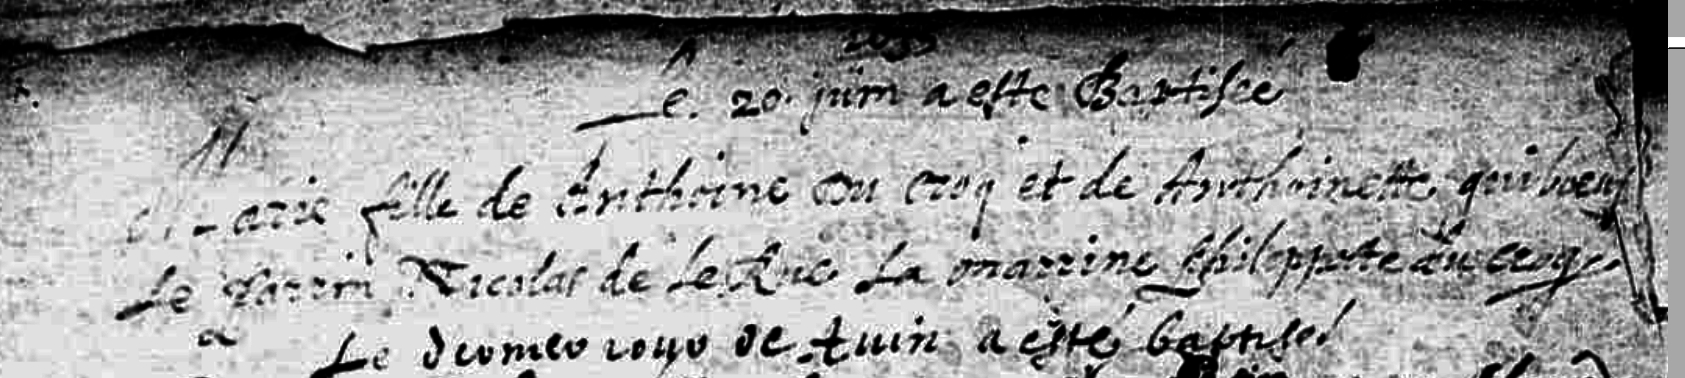 Le. 20. juin a este Baptisee
Marie fille de Anthoine du croq et de Anthoinette quiboeuf
Le Parrin Nicolas de Le Rue La marrine Philippote du croq
Le de Juin a esté baptisé